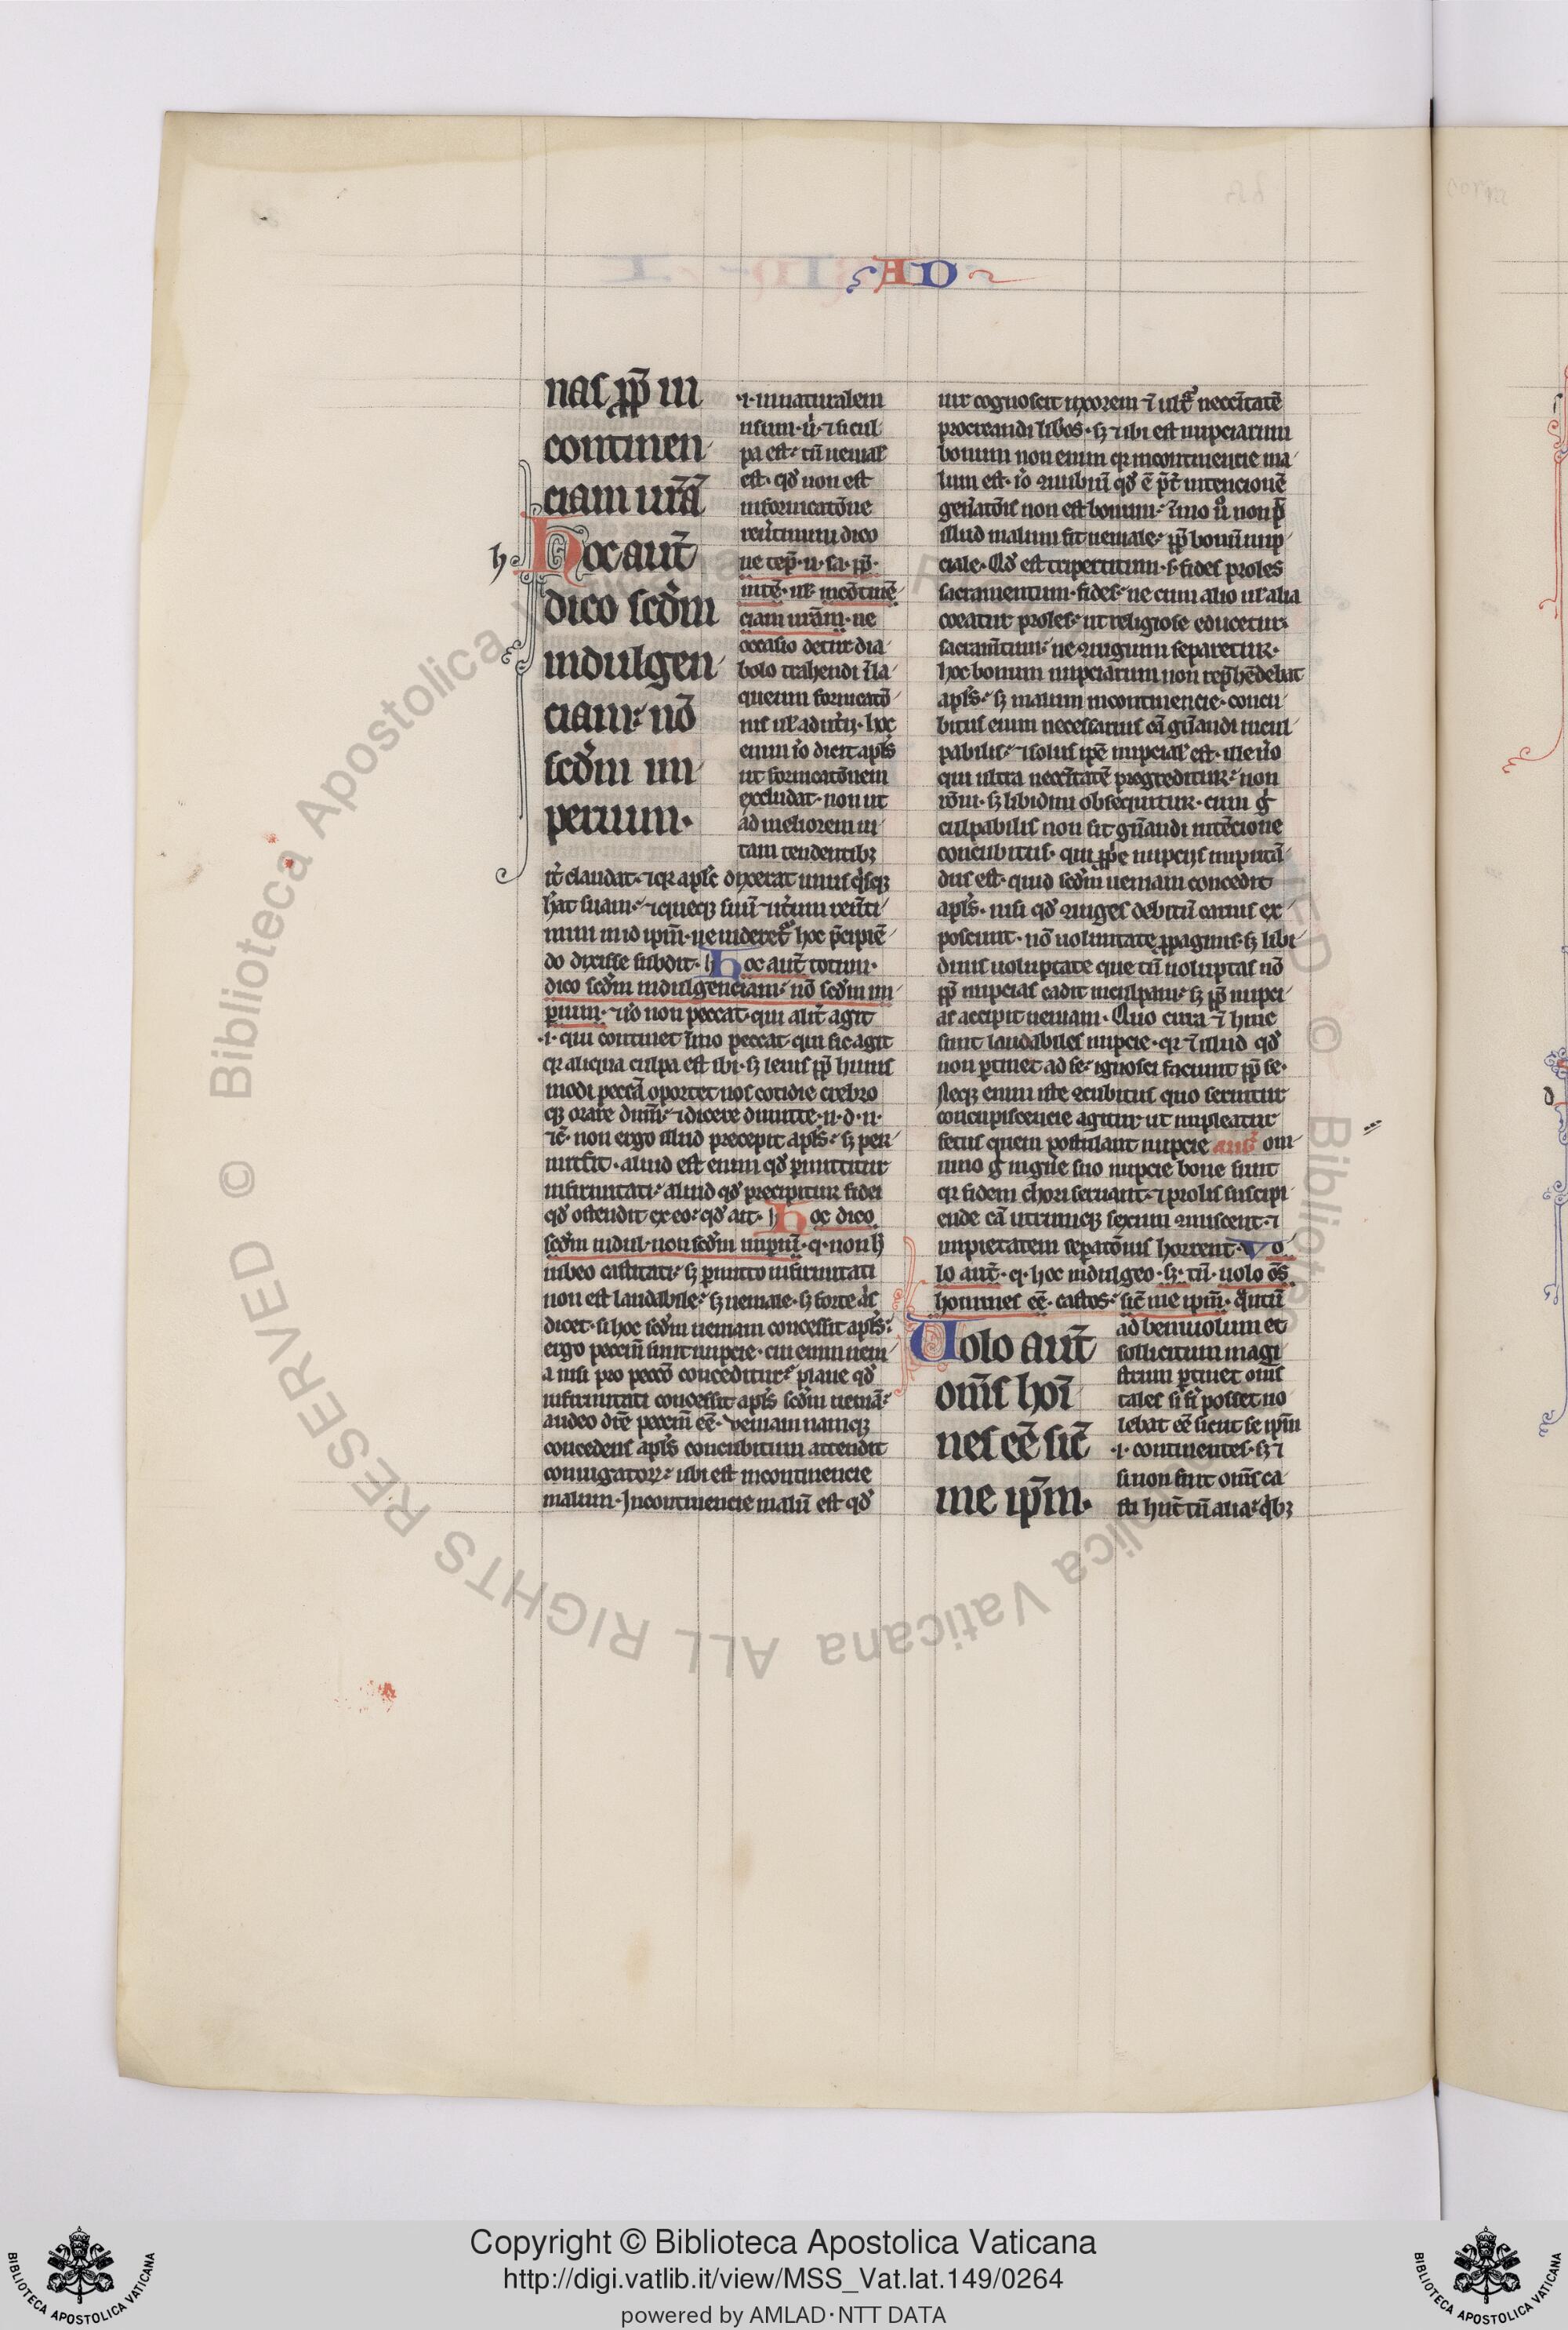 AD
nas ꝓp̃ in
continen
ciam ur̃ã
h
Hoc aut̃
dico scd̾m
indulgen
ciam· nõ
scd̾m im
perium·
·i· innaturalem
usum· ił· ⁊ si cul
pa est· tñ uenial̾
est· qd̾ non est
in fornicatõne
ne tẽp̃· u· sa· ꝓp̃·
ciam ur̃am· ne
occasio detur dia
bolo trahendi ĩ la
queum fornicatõ
nis ul̾ adul̾tij· hoc
enim io̾ dicit apl̾s
ut fornicatõnem
excludat· non ut
ad meliorem ui
tam tendentibꝫ
it̾ claudat· ⁊ qꝛ apl̾s dixerat unus q̾sqꝫ
do dixisse subdit· Hoc aut̃ totum·
dico scd̾m indulgenciam· nõ scd̾m im
ꝑium· ⁊ io̾ non peccat· qui alit̾ agit
·i· qui continet ĩmo peccat qui sic agit
qꝛ aliqua culpa est ibi· sꝫ leuis ꝓp̃ huius
modi pecc̃a oportet uos cotidie crebro
qꝫ orare dñm· ⁊ dicere dimitte· n· d· n·
⁊c̃· non ergo illud precepit apl̾s· sꝫ per
misit· aliud est enim qd̾ ꝑmittitur
infirmitati· aliud qd̾ precipitur fidei
qd̾ ostendit ex eo· qd̾ ait· Hoc dico
scd̾m indul· non scd̾m imꝑiũ· q· non h̾
iubeo castitati· sꝫ ꝑmitto infirmitati
non est laudabile· sꝫ ueniale· sꝫ forte al̾s
dicet· si hoc scd̾m ueniam concessit apl̾s·
ergo pecc̃m sunt nupcie· cui enim ueni
a nisi pro pecc̃o conceditur· plane qd̾
infirmitati concessit apl̾s scd̾m ueniã·
audeo dic̃e pecc̃m ee̾· Veniam namqꝫ
concedens apl̾s concubitum attendit
coniugatoꝝ· ubi est incontinencie
malum· Incontinencie malũ est qd̾
uir cognoscit uxorem ⁊ ultᵃ necc̃itatẽ
procreandi lib̾os· sꝫ ⁊ ibi est nupciarum
bonum non enim qꝛ incontinencie ma
lum est· io̾ ꝯnubiũ qd̾ ẽ p̃t̾ intencionẽ
gen̾atõis non est bonum· ĩmo u̾o non ꝓp̃
illud malum fit ueniale· ꝓp̃ bonũ nup
ciale· Qd̾ est tripertitum· s· fides proles
sacramentum· fides· ne cum alio ul̾ alia
coeatur proles· ut religiose educetur·
sacram̃tum· ne ꝯiugium separetur·
hoc bonum nupciarum non rep̾hẽdebat
apl̾s· sꝫ malum incontinencie· concu
bitus enim necessarius cã gñandi incul
pabilis· ⁊ solus ip̃e nupcial̾ est· ille u̾o
qui ultra necc̃itatẽ progreditur· non
rõni· sꝫ libidini obsequitur· cum g̾
culpabilis non sit gñandi intẽcione
concubitus· qui ꝓpͥe nupcijs imputã
dus est· quid scd̾m ueniam concedit
apl̾s· nisi qd̾ ꝯiuges debitũ carnis ex
poscunt· nõ uoluntate ꝓpaginis· sꝫ libi
dinis uoluptate que tñ uoluptas nõ
ꝓp̃ nupcias cadit in culpam· sꝫ ꝓp̃ nupci
as accipit ueniam· Quo circa ⁊ hinc
sunt laudabiles nupcie· qꝛ ⁊ illud qd̾
non ꝑtinet ad se· ignosci faciunt ꝓp̃ se·
Neqꝫ enim iste ꝯcubitus quo seruitur
concupiscencie agitur ut impleatur
fetus quem postulant nupcie aug̾ om
nino g̾ in gñe suo nupcie bone sunt
qꝛ fidem thori seruant· ⁊ prolis suscipi
ende cã utrumqꝫ sexum ꝯmiscent· ⁊
impietatem sepatõnis horrent· Vo
lo aut̃· q· hoc indulgeo· sꝫ· tñ· uolo oẽs
homines eẽ· castos· sic̾ me ip̃m· q̾ntũ
Uolo aut̃
om̃s hoĩ
nes eẽ sic̾
me ip̃m·
ad beniuolum et
sollicitum magi
strum ꝑtinet om̃s
tales si fi̾ posset uo
lebat eẽ sicut se ip̃m
·i· continentes· sꝫ ⁊
si non sint om̃s ca
sti hñt tñ alia· q̾bꝫ
Copyright © Biblioteca Apostolica Vaticana
http://digi.vatlib.it/view/MSS_Vat.lat.149/0264
powered by AMLAD·NTT DATA
© Biblioteca Apostolica Vaticana ALL RIGHTS RESERVED
BIBLIOTECA APOSTOLICA VATICANA
BIBLIOTECA APOSTOLICA VATICANA